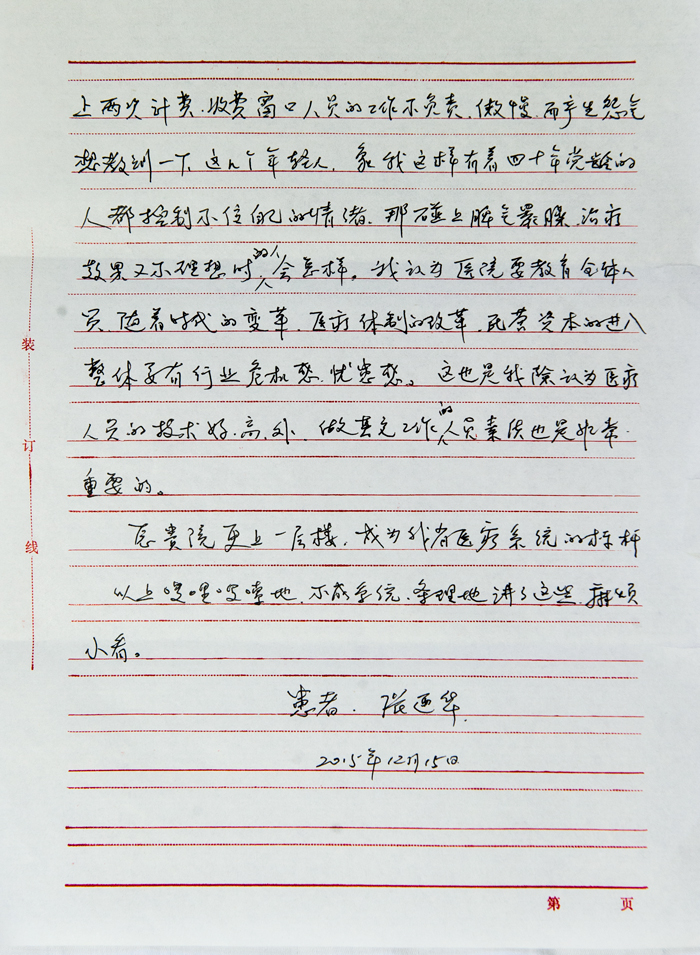 上两次计费、收费窗口人员的工作不负责、傲慢、而产生怨气
想教训一下这几个年轻人、象我这样有着四十年党龄的
人都控制不住自己的情绪、那碰上脾气暴躁、治疗
效果又不理想时的人会怎样。我认为医院要教育全体人
员、随着时代的变革、医疗体制的改革、民营资本的进入
整体要有行业危机感、忧患感。这也是我除认为医疗
人员的技术好、高、外、做其它工作的人员素质也是非常
重要的。
愿贵院更上一层楼、成为我省医疗系统的标杆
以上啰哩啰嗦地、不成系统、条理地讲了这些、麻烦
小看。
患者、张
2015年12月15日
装
订
线
第 页